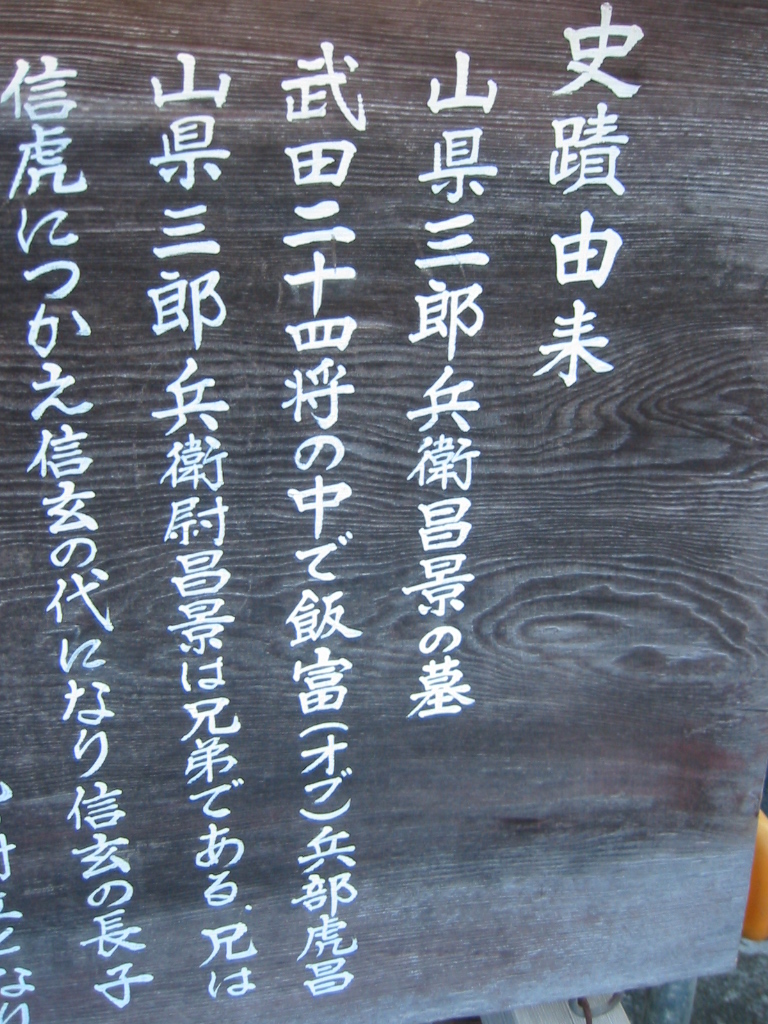 史蹟由来
山県三郎兵衛昌景の墓
武田二十四将の中で飯富(オブ)兵部虎昌
山県三郎兵衛尉昌景は兄弟である、兄は
信虎につかえ信玄の代になり信玄の長子
対立となり